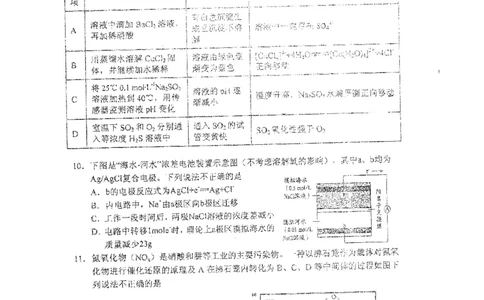 项
A
溶液中滴加 BaCl₂ 溶液，
再加稀硝酸
解
B
用蒸馏水溶解 CuCl₂ 固
体，并继续加水稀释
溶液由绿色逐
渐变为蓝色
正向移动
C
将 25℃ 0.1 mol·L⁻¹Na₂SO₃
溶液加热到 40℃，用传
感器监测溶液 pH 变化
溶液的 pH 逐
渐减小
温度升高，Na₂SO₃ 水解平衡正向移动
D
室温下 SO₂ 和 O₂ 分别通
入等浓度 H₂S 溶液中
通入 SO₂ 的试
管变黄快
SO₂ 氧化性强于 O₂
10．下图是“海水-河水”浓差电池装置示意图（不考虑溶解氧的影响），其中a、b均为
Ag/AgCl复合电极。下列说法不正确的是
A．b的电极反应式为AgCl+e⁻═Ag+Cl⁻
B．内电路中，Na⁺由a极区向b极区迁移
C．工作一段时间后，两极NaCl溶液的浓度差减小
D．电路中转移1mole⁻时，理论上a极区模拟海水的
质量减少23g
模拟海水
模拟河水
阳离子交换膜
11．氮氧化物（NOₓ）是硝酸和肼等工业的主要污染物。一种以沸石笼作为载体对氮氧
化物进行催化还原的原理及 A 在沸石笼内转化为 B、C、D 等中间体的过程如图下
列说法不正确的是